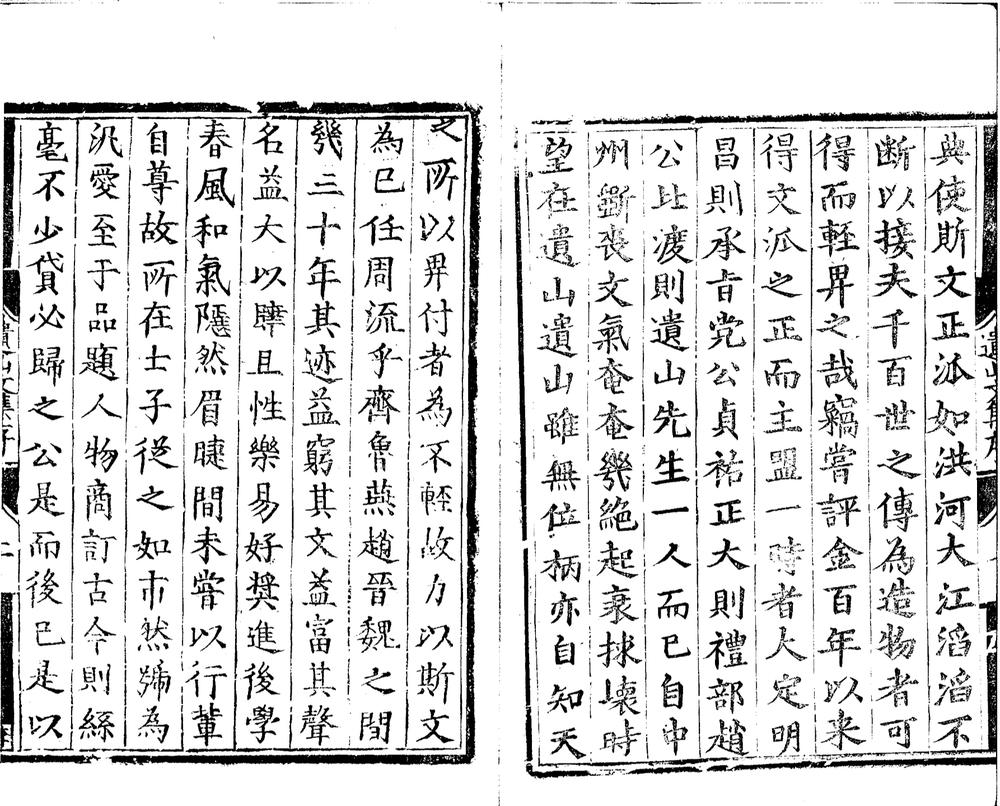 典使斯文正派如洪河大江滔滔不
断以接夫千百世之傳為造物者可
得而輕畀之哉竊嘗評金百年以来
得文派之正而主盟一時者大定明
昌則承旨党公貞祐正大則禮部趙
公比渡則遺山先生一人而已自中
州斲喪文氣奄奄幾絶起衰捄壞時
望在遺山遺山雖無位柄亦自知天
之所以畀付者為不輕故力以斯文
為已任周流乎齊魯燕趙晉魏之間
幾三十年其迹益窮其文益富其聲
名益大以肆且性樂易好奨進後學
春風和氣隱然眉睫間未嘗以行輩
自尊故所在士子從之如市然號為
汎愛至于品題人物商訂古今則絲
毫不少貸必歸之公是而後已是以